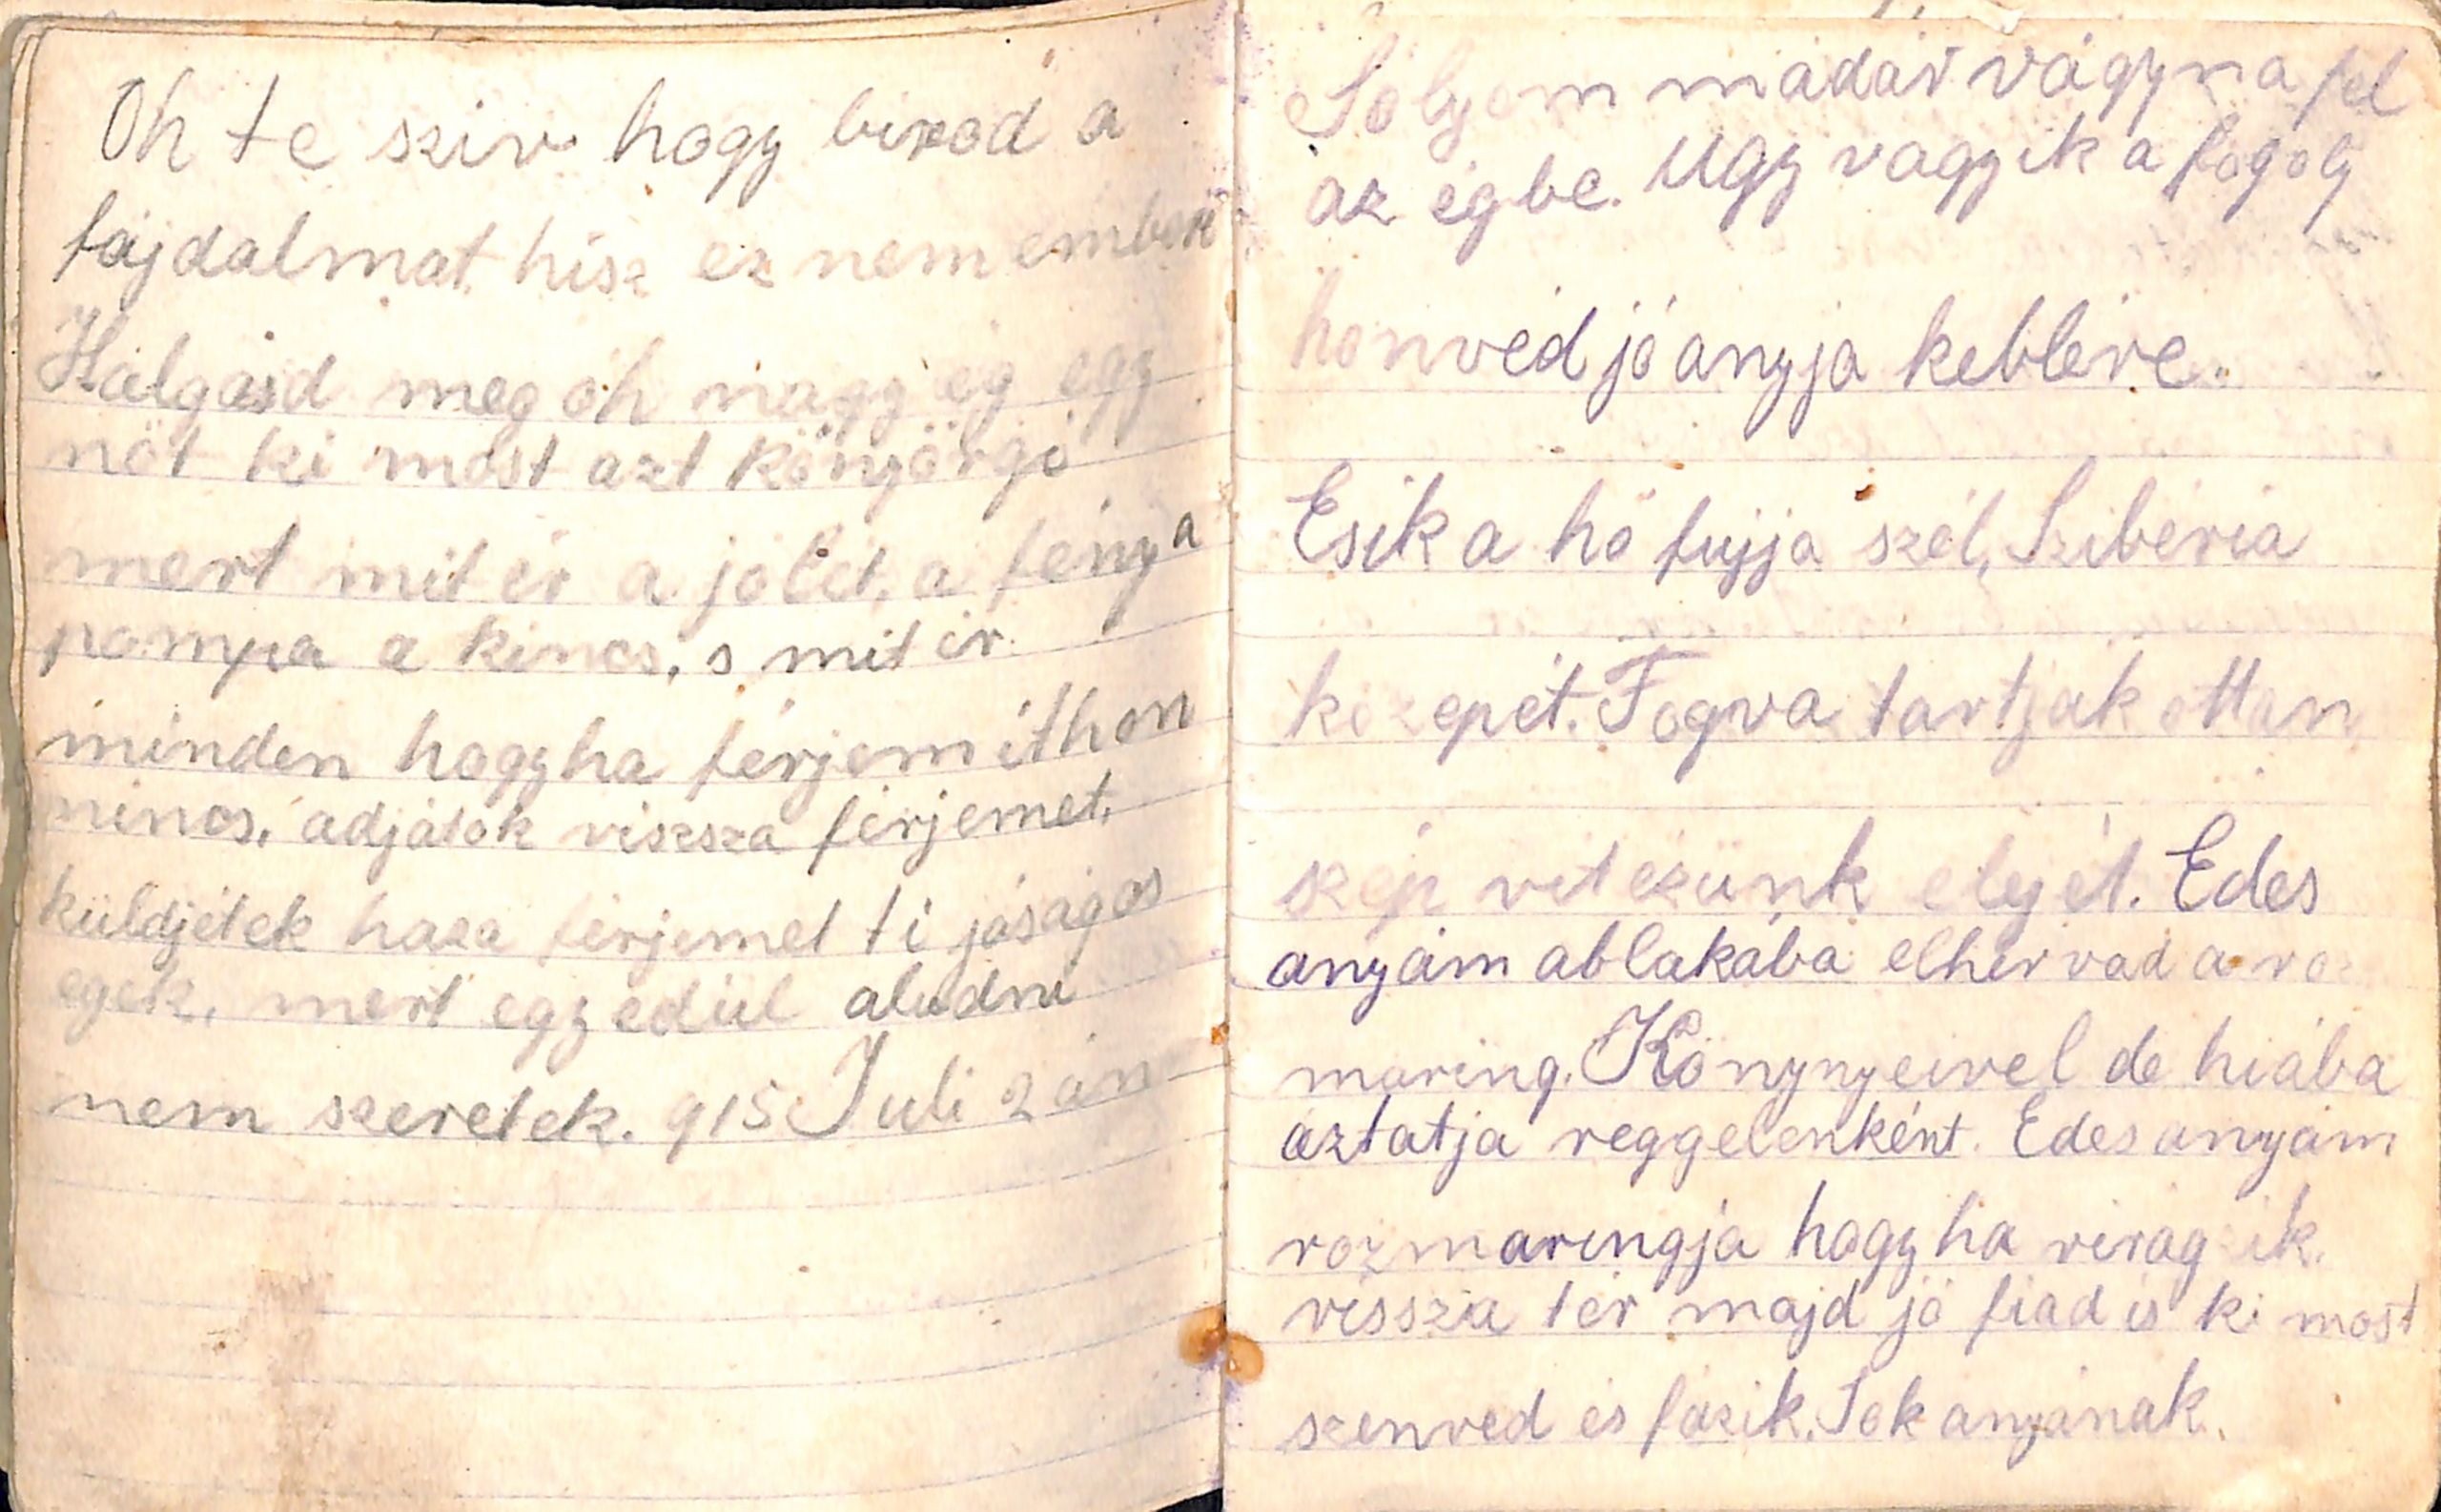 Oh te sziv hogy birod a
fájdalmat hisz ez nem emberi
Halgasd meg oh nagy ég egy
nöt ki most azt könyörgi
mert mit ér a jolét, a fény a
pompa a kincs, s mit ér
minden hogyha férjem ithon
nincs, adjátok viszsza férjemet,
küldjétek haza férjemet ti jóságos
egek, mert egyedül aludni
nem szeretek. 915 Juli 2 án
Solyom madár vágyna fel
az égbe. Ugy vagyik a fogoly
honvéd jó anyja keblére.
Esik a hó fujja szél, Szibéria
közepét. Fogva tartják ottan
szép vitézünk elejét. Edes
anyám ablakába elhervad a roz
maring. Könynyeivel de hiába
áztatja reggelenként. Edes anyám
rozmaringja hogy ha virag ik.
vissza tér majd jó fiad is ki most
szenved és fázik. Sok anyának.